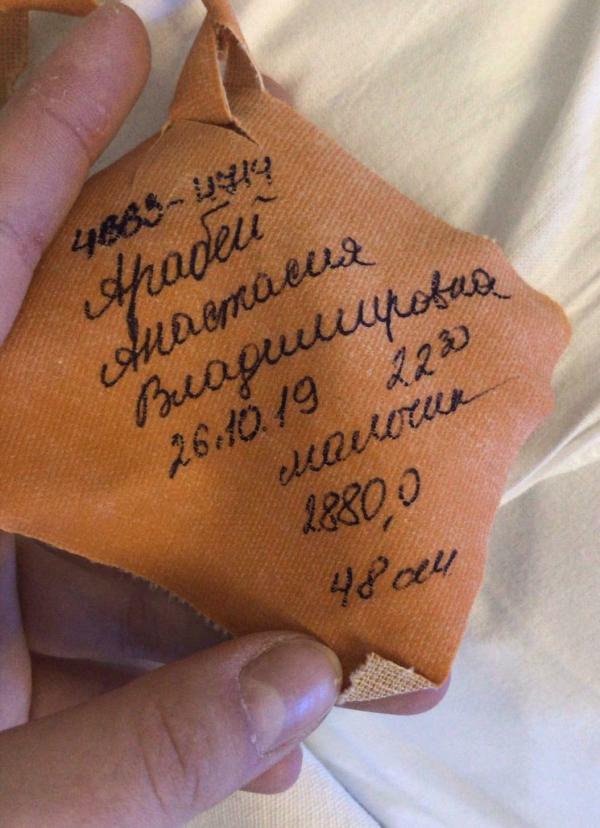 4ВВЗ-4714
Арабей
Анастасия
Владимировна
26.10.19 22 30
мальчик
2880,0
48 см